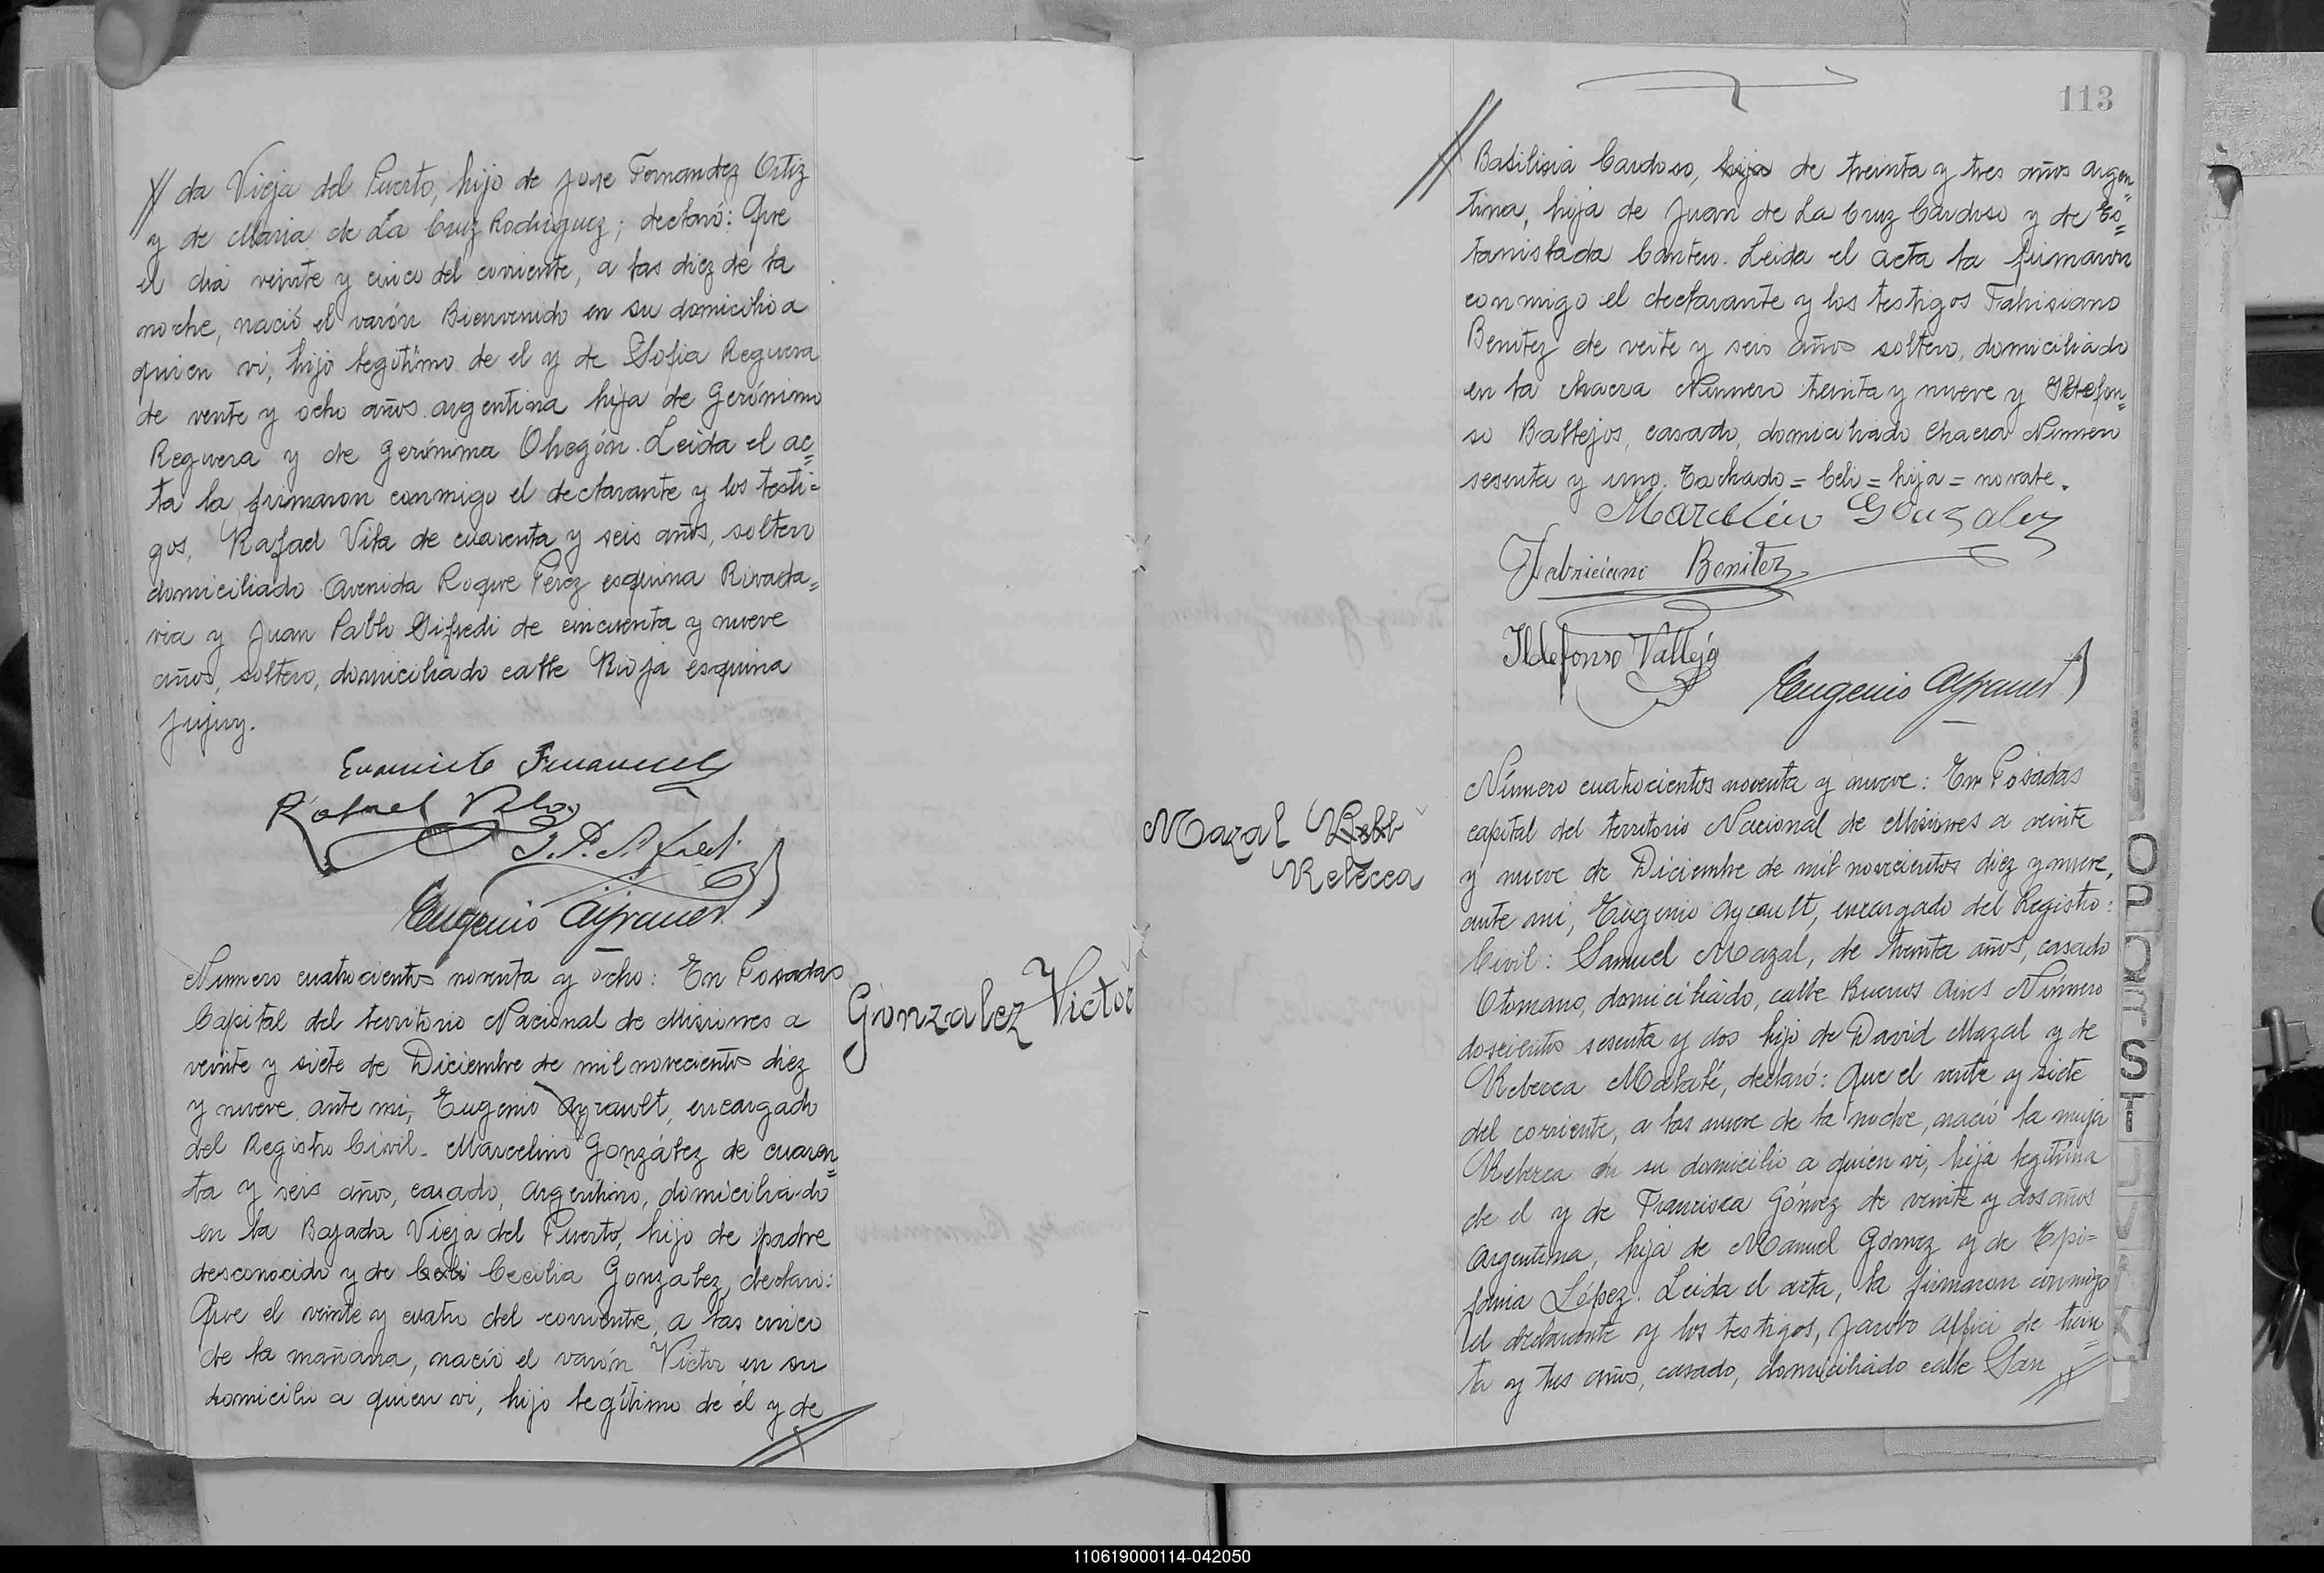 // da Vieja del Puerto, hijo de Jose Fernandez Ortiz
y de Maria de La Cruz Rodriguez; declaró: Que
el dia veinte y cinco del corriente, a las diez de la
noche, nació el varón Bienvenido en su domicilio a
quien vi, hijo legítimo de el y de Sofia Reguera
de vente y ocho años argentina hija de Gerónimo
Reguera y de Gerónima Obregón. Leida el ac=
ta la firmaron conmigo el declarante y los testi=
gos, Rafael Vila de cuarenta y seis años, soltero
domiciliado Avenida Roque Perez esquina Rivada=
via y Juan Pablo Sifredi de cincuenta y nueve
años, soltero, domiciliado calle Rioja esquina
Jujuy.
Rafael Vila
Eugenio Ayrault
Número cuatrocientos noventa y ocho: En Posadas
Capital del territorio Nacional de Misiones a
veinte y siete de Diciembre de mil novecientos diez
y nueve, ante mi, Eugenio Ayrault, encargado
del Registro Civil. Marcelino González de cuaren=
ta y seis años, casado, Argentino, domiciliado
en la Bajada Vieja del Puerto, hijo de padre
desconocido y de Celi Cecilia Gonzalez, declaró:
Que el veinte y cuatro del corriente, a las cinco
de la mañana, nació el varón Victor en su
domicilio a quien vi, hijo legítimo de él y de //
Gonzalez Victor
113
// Basilisia Cardoso, hija de treinta y tres años argen=
tina, hija de Juan de La Cruz Cardoso y de Es=
tanislada Cantero. Leida el acta la firmaron
conmigo el declarante y los testigos Fabisiano
Benitez de veite y seis años soltero, domiciliado
en la chacra Número treinta y nueve y Ildefon=
so Ballejos, casado, domiciliado chacra Número
sesenta y uno. Tachado = Celi = hija = no vale.
Marcelino Gonzalez
Fabriciano Benitez
Ildefonso Vallejo
Eugenio Ayrault
Mazal Rebb
Rebecca
Número cuatrocientos noventa y nueve: En Posadas
capital del territorio Nacional de Misiones a veinte
y nueve de Diciembre de mil novecientos diez y nueve,
ante mi, Eugenio Ayrault, encargado del Registro:
Civil: Samuel Mazal, de treinta años, casado
Otomano, domiciliado, calle Buenos Aires Número
doscientos sesenta y dos hijo de David Mazal y de
Rebecca Malaté, declaró: Que el vente y siete
del corriente, a las nueve de la noche, nació la mujer
Rebecca en su domicilio a quien vi, hija legítima
de el y de Francisca Gómez de veinte y dos años
Argentina, hija de Manuel Gómez y de Epi=
fania López. Leida el acta, la firmaron conmigo
el declarante y los testigos, Jacobo Alfici de trein=
ta y tres años, casado, domiciliado calle San //
110619000114-042050